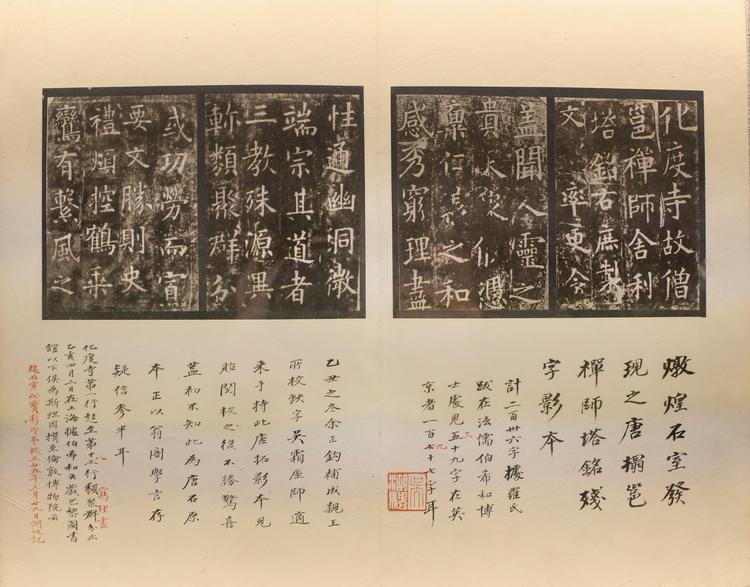 化度寺故僧
邕禪師舍利
塔銘右庶
文 率更令
蓋聞人靈之
貴
稟仁 之和
感秀窮理盡
性通幽洞微
端宗其道者
三教殊源異
軫類聚群分
或功勞而
要文勝則史
禮煩控鶴乘
鸞有繫風之
燉煌石室發
現之唐搨邕
禪師塔銘殘
字影本
計二百卅六字據羅氏
跋在法儒伯希和博
士處見三五十九字在英
京者一百九七十七字耳
乙丑之冬余正鈎補成親王
所校缺字吳霜厓師適
來手持此唐拓影本見
貽閱校之後不勝驚喜
蓋初不知此為唐石原
本正以翁閣學言存
疑信參半耳
化度寺第一行起至第十八行類聚群分止
窮理盡
乙亥四月二日在上海據伯希和云藏巴黎圖書
館以下俱為斯坦因攜至倫敦博物院云